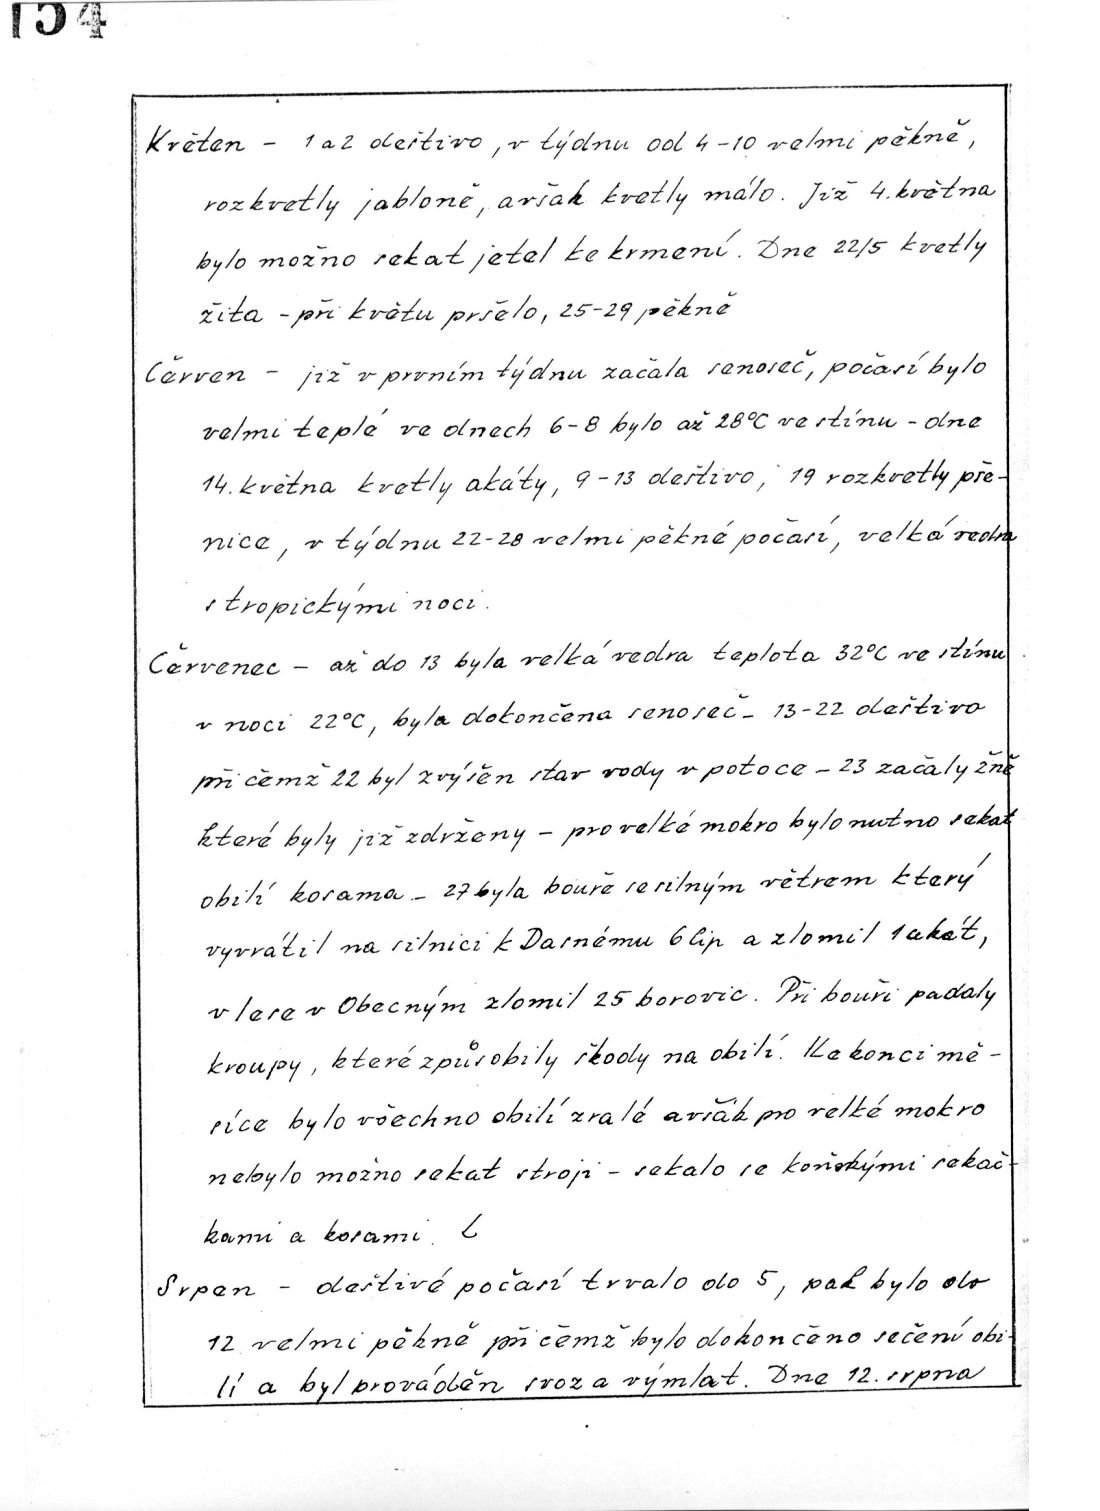 154
Květen - 1 a 2 deštivo, v týdnu od 4-10 velmi pěkně,
rozkvetly jabloně, avšak kvetly málo. Již 4. května
bylo možno sekat jetel ke krmení. Dne 22/5 kvetly
žita - při květu pršelo, 25-29 pěkně
Červen - již v prvním týdnu začala senoseč, počasí bylo
velmi teplé ve dnech 6-8 bylo až 28°C ve stínu - dne
14. května kvetly akáty, 9-13 deštivo, 19 rozkvetly pše-
nice, v týdnu 22-28 velmi pěkné počasí, velká vedra
s tropickými noci.
Červenec - až do 13 byla velká vedra teplota 32°C ve stínu
v noci 22°C, byla dokončena senoseč - 13-22 deštivo
při čemž 22 byl zvýšen stav vody v potoce - 23 začaly žně
které byly již zdrženy - pro velké mokro bylo nutno sekat
obilí kosama - 27 byla bouře se silným větrem který
vyvrátil na silnici k Dasnému 6 lip a zlomil 1 akát,
v lese v Obecným zlomil 25 borovic. Při bouři padaly
kroupy, které způsobily škody na obilí. Ke konci mě-
síce bylo všechno obilí zralé avšák pro velké mokro
nebylo možno sekat stroji - sekalo se koňskými sekač-
kami a kosami.
Srpen - deštivé počasí trvalo do 5, pak bylo do
12 velmi pěkně při čemž bylo dokončeno sečení obi-
lí a byl prováděn svoz a výmlat. Dne 12. srpna